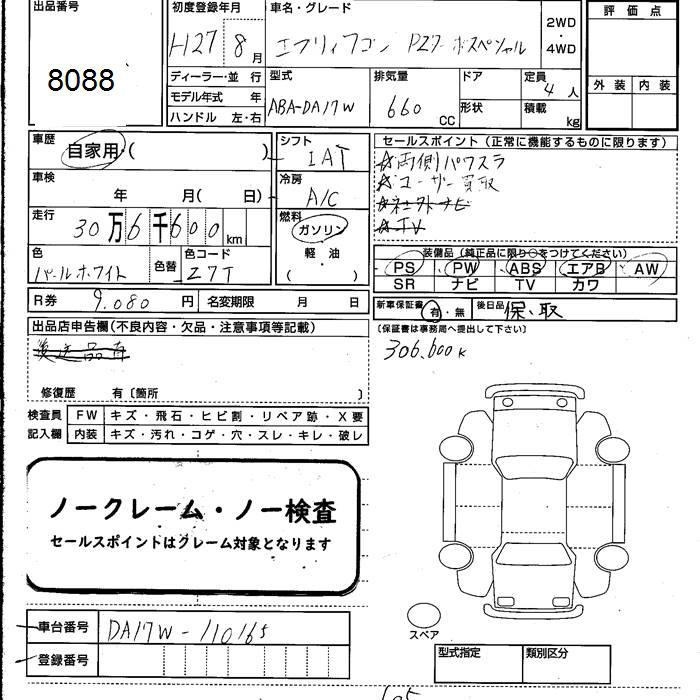 出品番号
8088
初度登録年月
H27 8月
車名・グレード
エブリィワゴン PZターボスペシャル
2WD
・
4WD
評価点
外装 内装
ディーラー・並 行
モデル年式 年
ハンドル 左・右
型式
ABA-DA17W
排気量
660 CC
ドア
形状
定員
4人
積載
kg
車歴
自家用・( )
シフト
IAT
車検
年 月( 日)
冷房
A/C
走行
30万6千600km
燃料
ガソリン
軽・油
( )
色
パールホワイト
色替
色コード
Z7T
R券 9.080 円 名変期限 月 日
セールスポイント(正常に機能するものに限ります)
☆両側パワスラ
☆ユーザー買取
☆TV
装備品(純正品に限り○をつけてください)
PS PW ABS エアB AW
SR ナビ TV カワ
新車保証書 有・無 後日品 保、取
(保証書は事務局へ提出して下さい)
306,600K
出品店申告欄(不良内容・欠品・注意事項等記載)
後送品有
修復歴 有〔箇所 〕
検査員
記入欄
FW キズ・飛石・ヒビ割・リペア跡・X要
内装 キズ・汚れ・コゲ・穴・スレ・キレ・破レ
ノークレーム・ノー検査
セールスポイントはクレーム対象となります
車台番号 DA17W-110165
登録番号
スペア
型式指定 類別区分